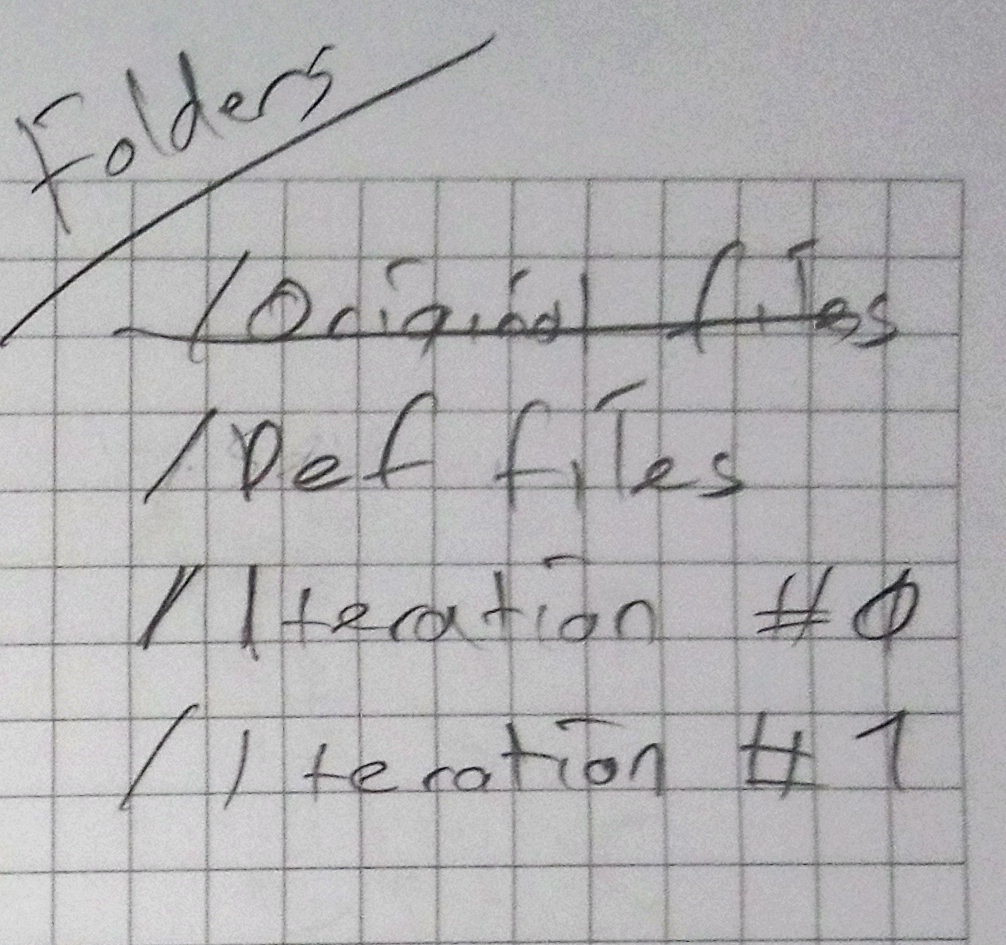 Folders
/Original files
/Def files
/Iteration #0
/Iteration #1